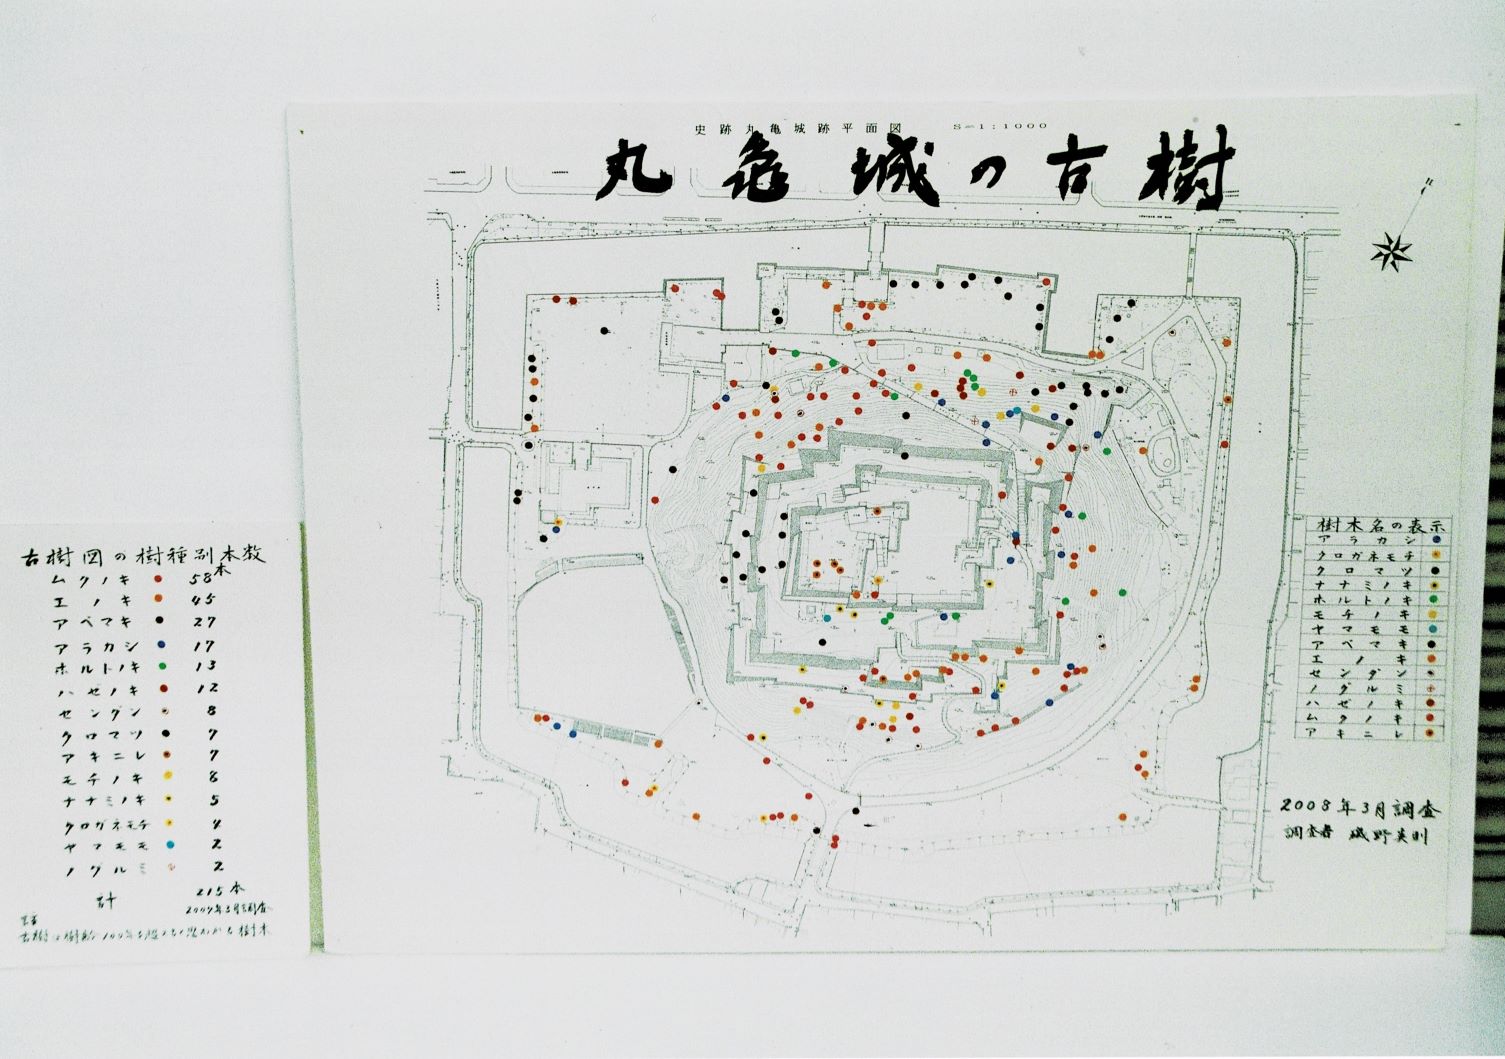 史跡丸亀城跡平面図 S=1:1000
丸亀城の古樹
古樹図の樹種別本数
ムクノキ 58本
エノキ 45
アベマキ 27
アラカシ 17
ホルトノキ 13
ハゼノキ 12
センダン 8
クロマツ 7
アキニレ 7
モチノキ 8
ナナミノキ 5
クロガネモチ 4
ヤマモモ 2
ノグルミ 2
計 215本
樹木名の表示
アラカシ
クロガネモチ
クロマツ
ナナミノキ
ホルトノキ
モチノキ
ヤマモモ
アベマキ
エノキ
センダン
ノグルミ
ハゼノキ
ムクノキ
アキニレ
2008年3月調査
調査者